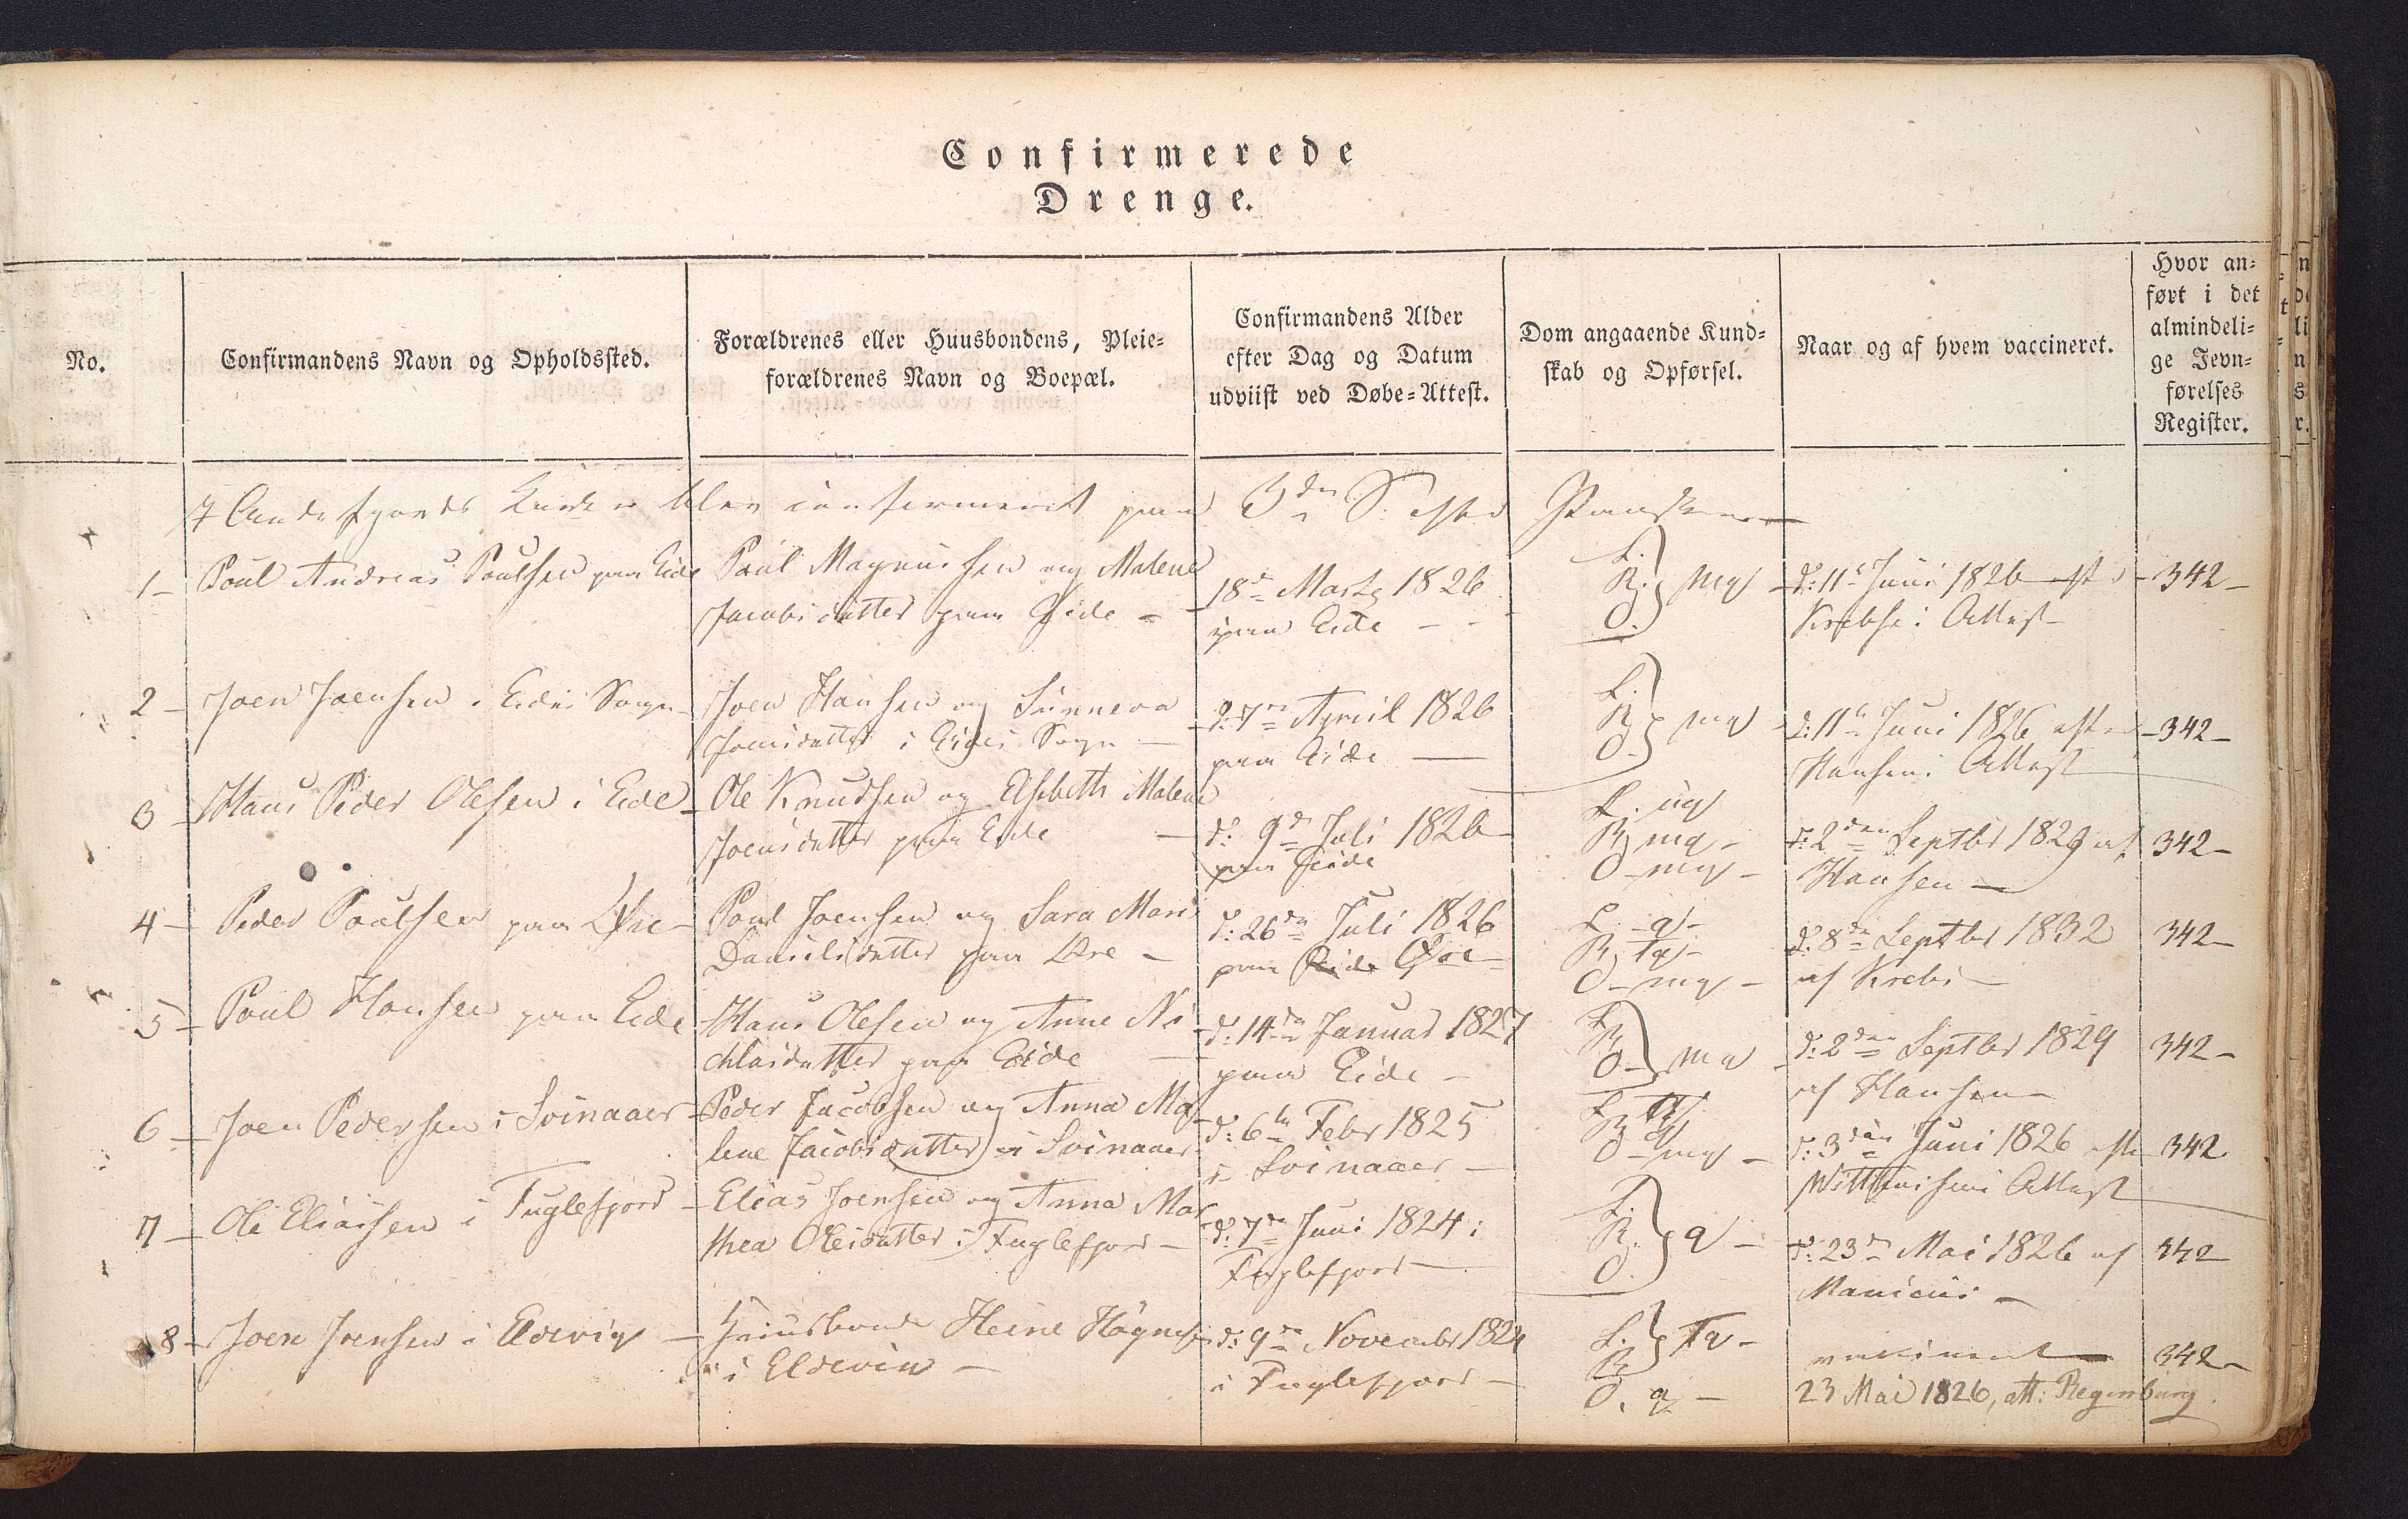 Confirmerede
Drenge.
No.
Confirmandens Navn og Opholdssted.
Forældrenes eller Huusbondens, Pleie-
forældrenes Navn og Boepæl.
Confirmandens Alder
efter Dag og Datum
udviist ved Døbe-Attest.
Dom angaaende Kund-
skab og Opførsel.
Naar og af hvem vaccineret.
Hvor an-
ført i det
almindeli-
ge Jevn-
førelses
Register.
blev confirmeret paa 3die S. efter Paaske
1 -
Poul Andreas Poulsen paa Eide
Poul Magnussen og Malene
Jacobsdatter paa Eide -
18de Martz 1826
paa Eide -
L.
K. mg
O.
d: 11te Juni 1826 efter
Krebses Attest
- 342 -
2 -
Joen Joensen i Eides Sogn
Joen Hansen og Sunneva
Joensdatter i Eides Sogn -
d: 7de April 1826
paa Eide -
L.
K. mg
O.
d: 11te Juni 1826 efter
Hansens Attest
- 342 -
3 -
Hans Peder Olesen i Eide
Ole Knudsen og Elsebeth Malene
Joensdatter paa Eide -
d: 9de Juli 1826
paa Eide
L. ug
K. mg -
O - mg -
d: 2den Septbr 1829 af
Hansen -
342 -
4 -
Peder Poulsen paa Øre
Poul Joensen og Sara Marie
Danielsdatter paa Øre -
d: 26de Juli 1826
paa Eide Øre
L. g -
K. Tg -
O - mg -
d: 8de Septbr 1832
af Krebs -
342 -
5 -
Poul Hansen paa Eide
Hans Olesen og Anne Ni-
chlasdatter paa Eide -
d: 14de Januar 1827
paa Eide -
L.
K. mg
O -
d: 2den Septbr 1829
af Hansen -
342 -
6 -
Joen Pedersen i Svinaaer
Peder Jacobsen og Anna Ma-
lene Jacobsdatter i Svinaaer
d: 6te Febr 1825
i Svinaaer -
L.
K. g
O - mg -
d: 3die Juni 1826 efter
Attest
342
7 -
Ole Eliassen i Fuglefjord
Elias Joensen og Anna Mar-
thea Olesdatter i Fuglefjord -
d: 7de Juni 1824 i
Fuglefjord -
L.
K. g -
O.
d: 23de Mai 1826 af
Manicus -
342
8 -
Joen Joensen i Eldevig -
Huusbonde Heine
i Eldevig -
d: 9de November 1824
i Fuglefjord -
L. Tg -
K.
O. g -
vaccineret
23 Mai 1826, att: Regenburg.
342 -